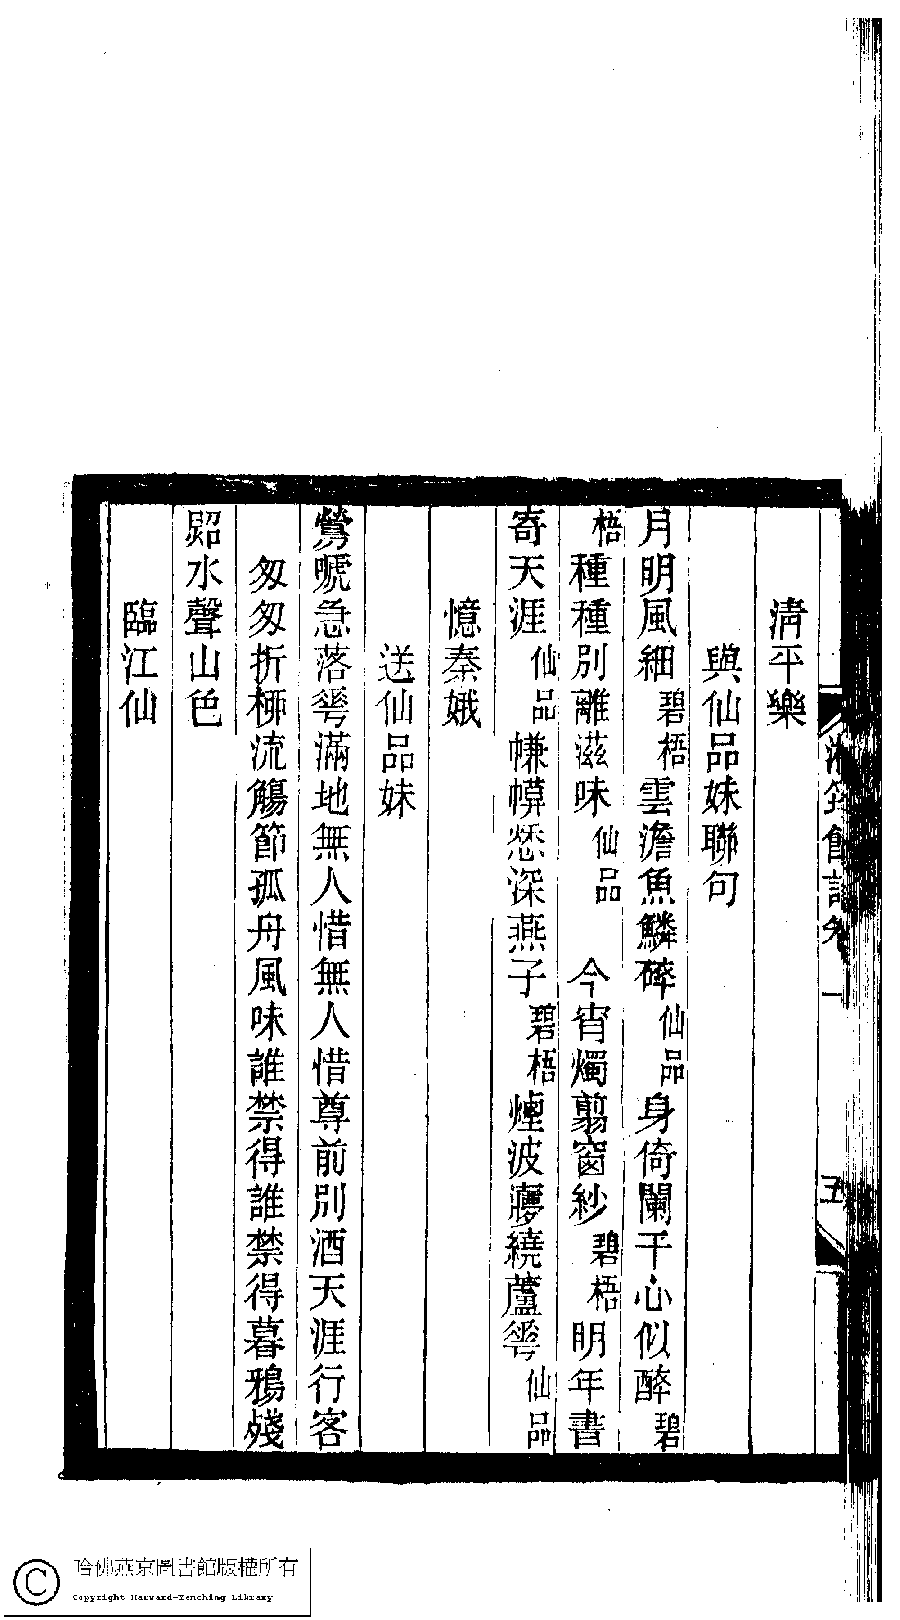 清平樂
與仙品妹聯句
月明風細碧梧雲澹魚鱗碎仙品身倚闌干心似醉碧
梧種種別離滋味仙品　今宵燭翦窗紗碧梧明年書
寄天涯仙品㡘幙愁深燕子碧梧煙波㝱繞蘆蕚仙品
憶秦娥
送仙品妹
鶯嗁急落蕚滿地無人惜無人惜尊前別酒天涯行客
匆匆折桺流觴節孤舟風味誰禁得誰禁得暮鴉殘
照水聲山色
臨江仙
館詞
一
五
哈佛燕京圖書館版權所有
Copyright Harvard-Yenching Library